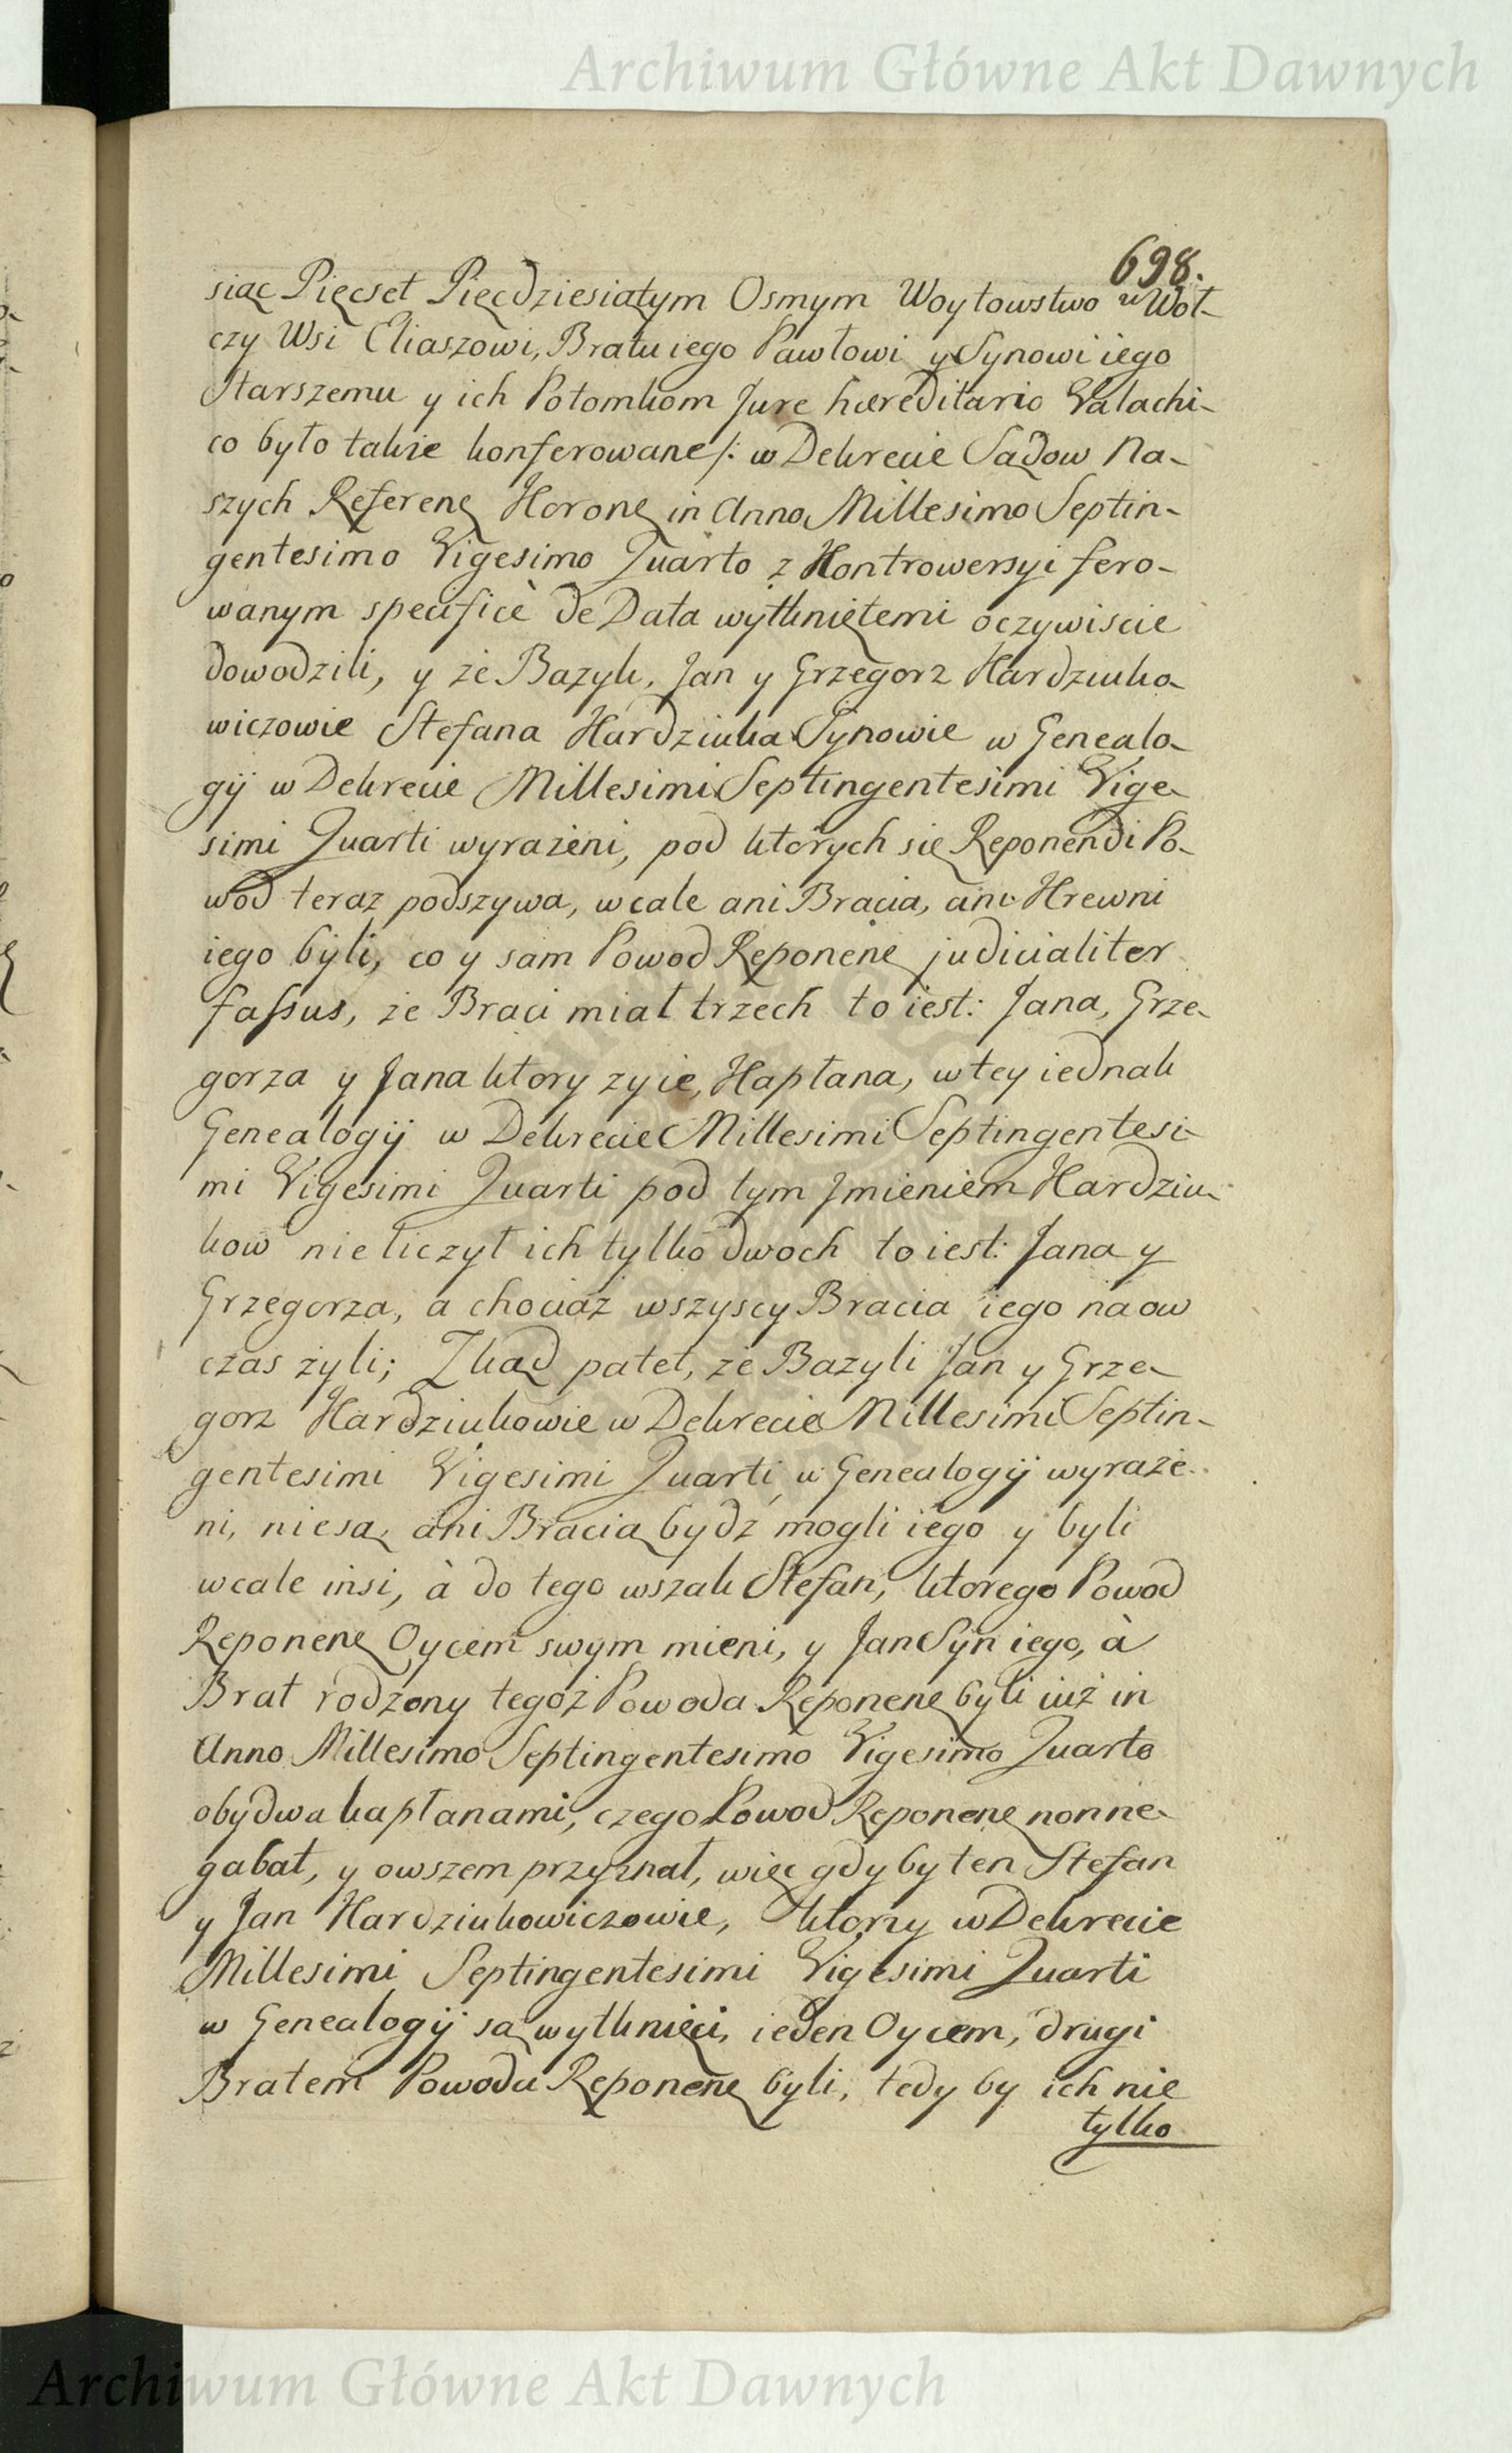 Archiwum Główne Akt Dawnych
698.
siąc Pięcset Pięcdziesiątym Osmym Woytowstwo w Woł-
czy Wsi Eliaszowi, Bratu iego Pawłowi y Synowi iego
Starszemu y ich Potomkom Jure hæreditario Valachi-
co było takie konferowane /: w Dekrecie Sądow Na-
szych Referenę Koronę in Anno Millesimo Septin-
gentesimo Vigesimo Quarto z Kontrowersyi fero-
wanym specificè de Data wytkniętemi oczywiscie
dowodzili, y że Bazyli, Jan y Grzegorz Hardziuko-
wiczowie Stefana Hardziuka Synowie w Genealo-
gij w Dekrecie Millesimi Septingentesimi Vige-
simi Quarti wyrażeni, pod których się Reponendi Po-
wod teraz podszywa, wcale ani Bracia, ani Krewni
iego byli, co y sam Powod Reponenę judicialiter
fassus, że Braci miał trzech to iest: Jana, Grze-
gorza y Jana ktory zyie, Kapłana, w tey iednak
Genealogij w Dekrecie Millesimi Septingentesi-
mi Vigesimi Quarti pod tym Jmieniem Hardziu-
kow nie liczył ich tylko dwoch to iest: Jana y
Grzegorza, a chociaż wszyscy Bracia iego na ow
czas żyli; Zkąd patet, że Bazyli Jan y Grze-
gorz Hardziukowie w Dekrecie Millesimi Septin-
gentesimi Vigesimi Quarti w Genealogij wyraże-
ni, nie są, ani Bracią bydź mogli iego y byli
wcale insi, à do tego wszak Stefan, ktorego Powod
Reponenę Oycem swym mieni, y Jan Syn iego, à
Brat rodzony tegoż Powoda Reponenę byli iuż in
Anno Millesimo Septingentesimo Vigesimo Quarto
obydwa kapłanami, czego Powod Reponenę non ne-
gabat, y owszem przyznał, więc gdyby ten Stefan
y Jan Hardziukowiczowie, ktorzy w Dekrecie
Millesimi Septingentesimi Vigesimi Quarti
w Genealogij są wytknięci, ieden Oycem, drugi
Bratem Powoda Reponenę byli, tedy by ich nie
tylko
Archiwum Główne Akt Dawnych